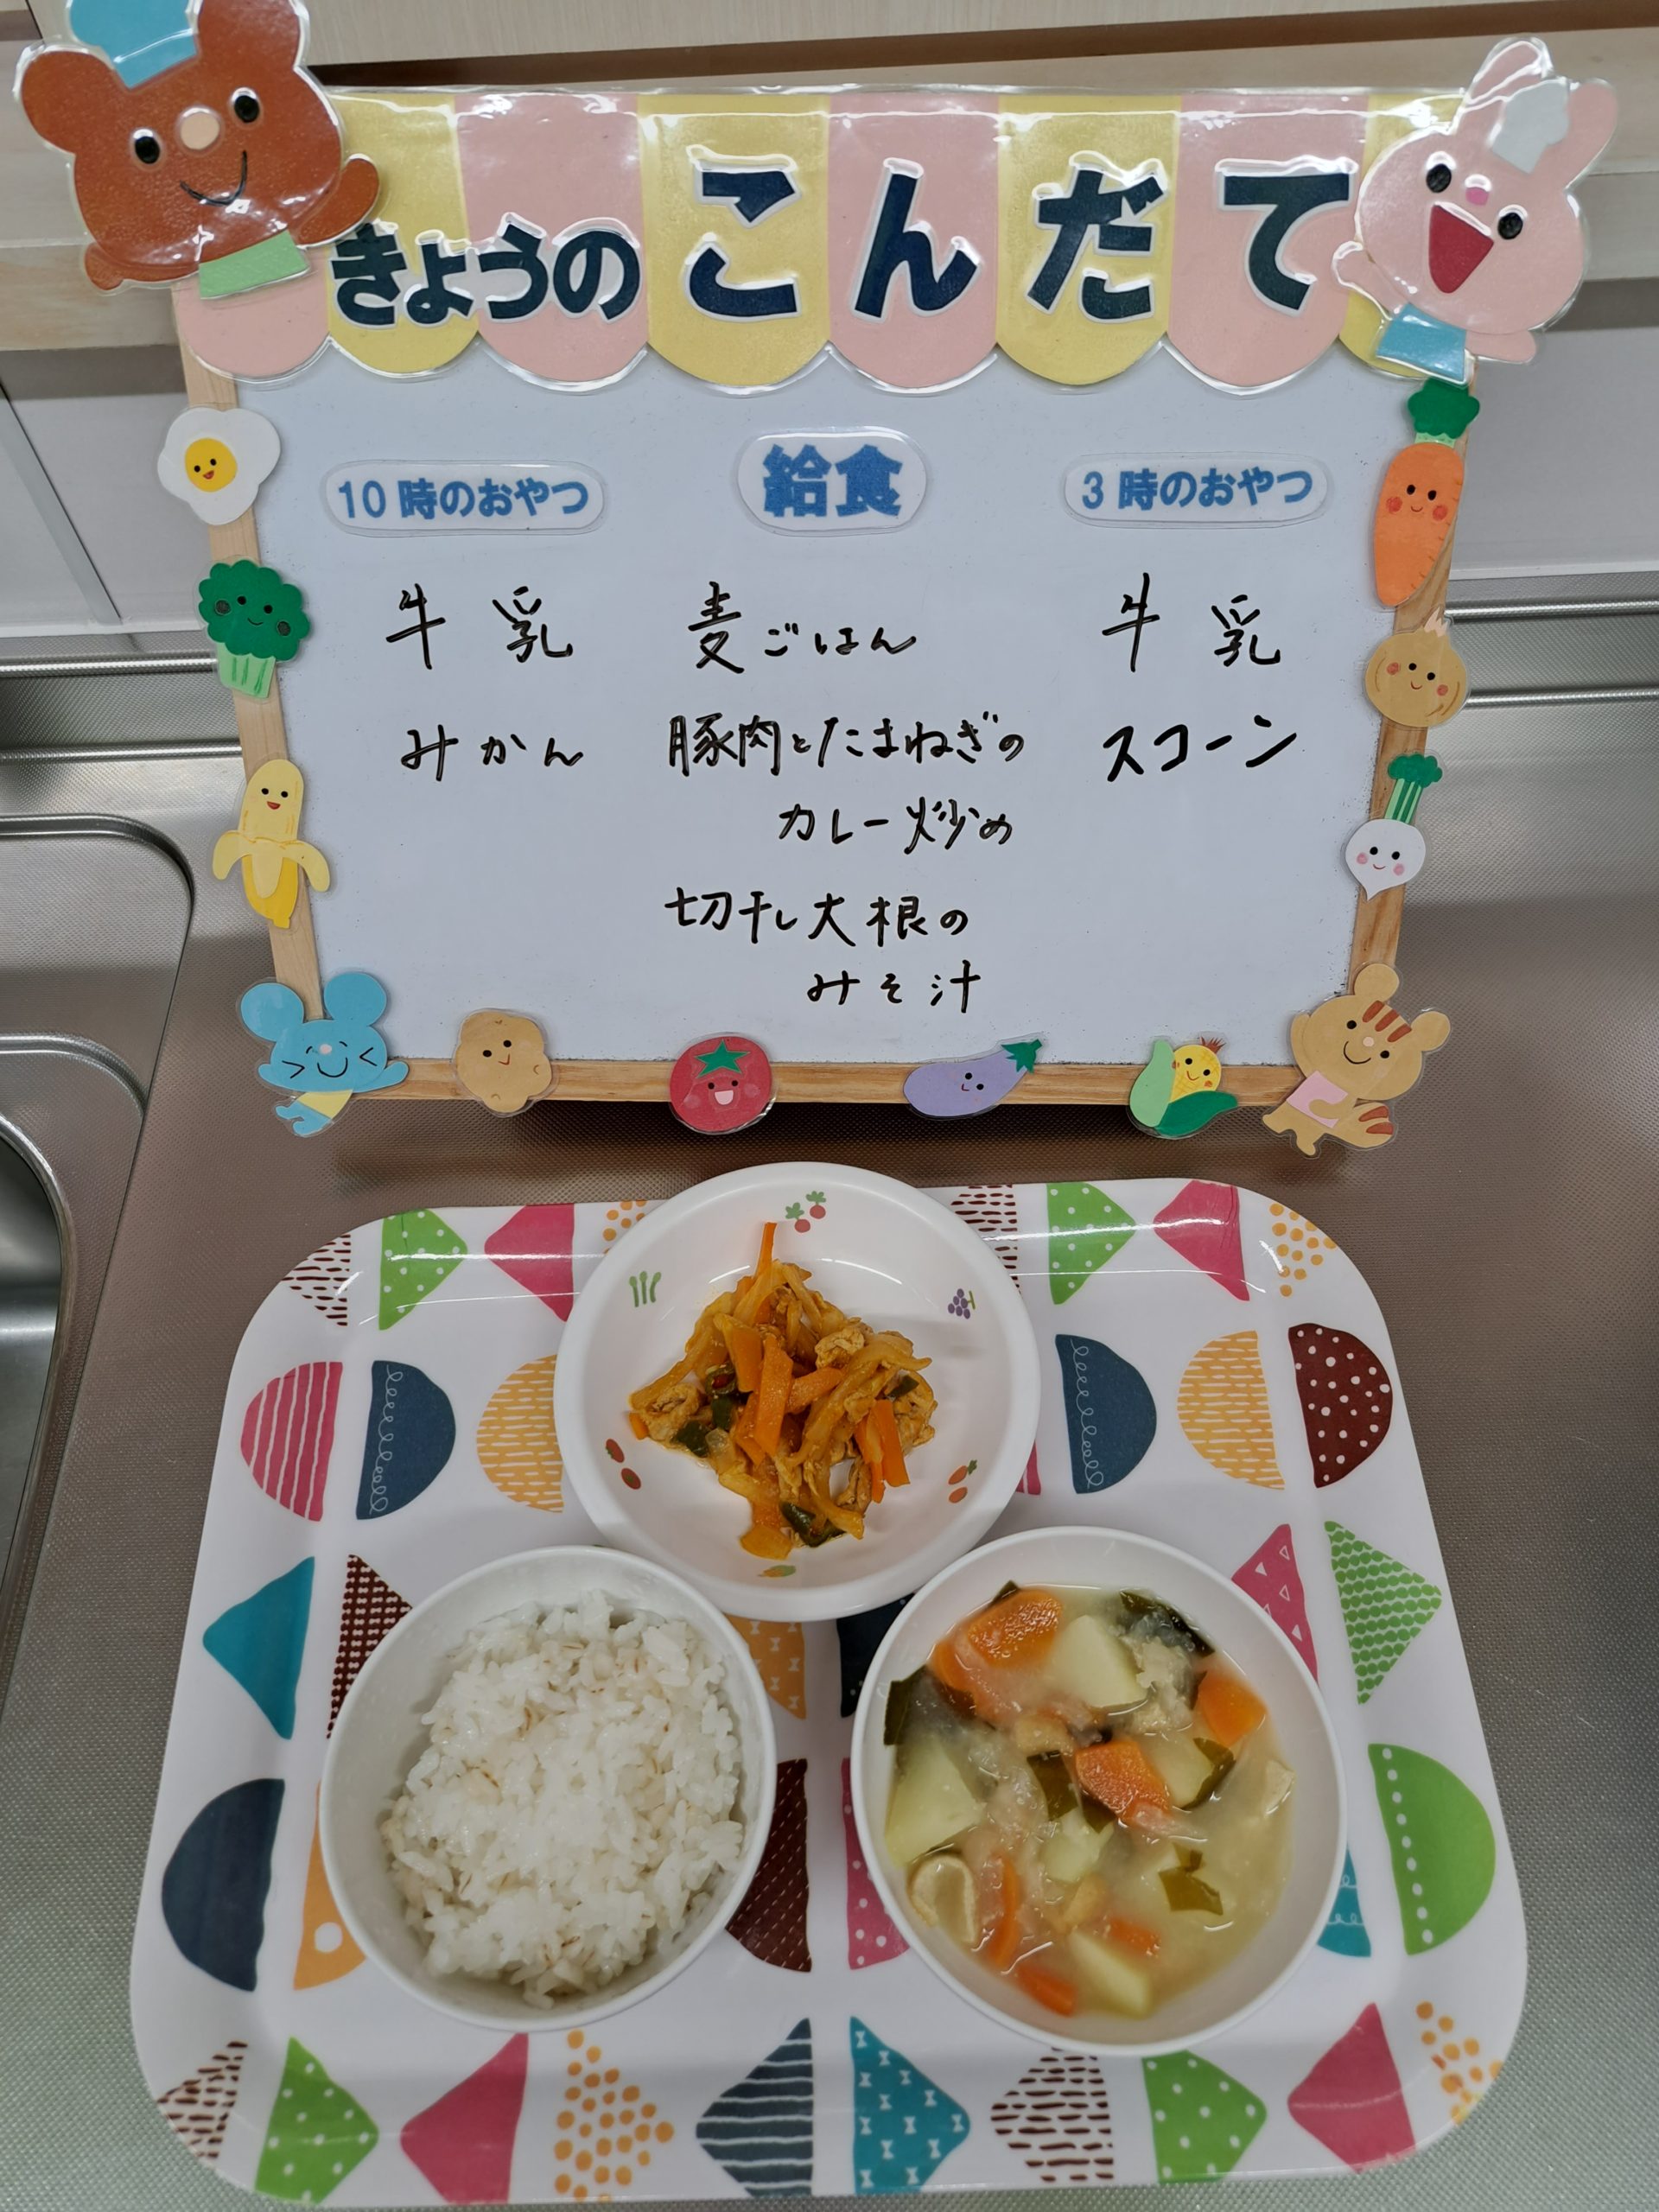 きょうの こんだて
10時のおやつ
牛乳
みかん
給食
麦ごはん
豚肉とたまねぎの
カレー炒め
切干し大根の
みそ汁
3時のおやつ
牛乳
スコーン